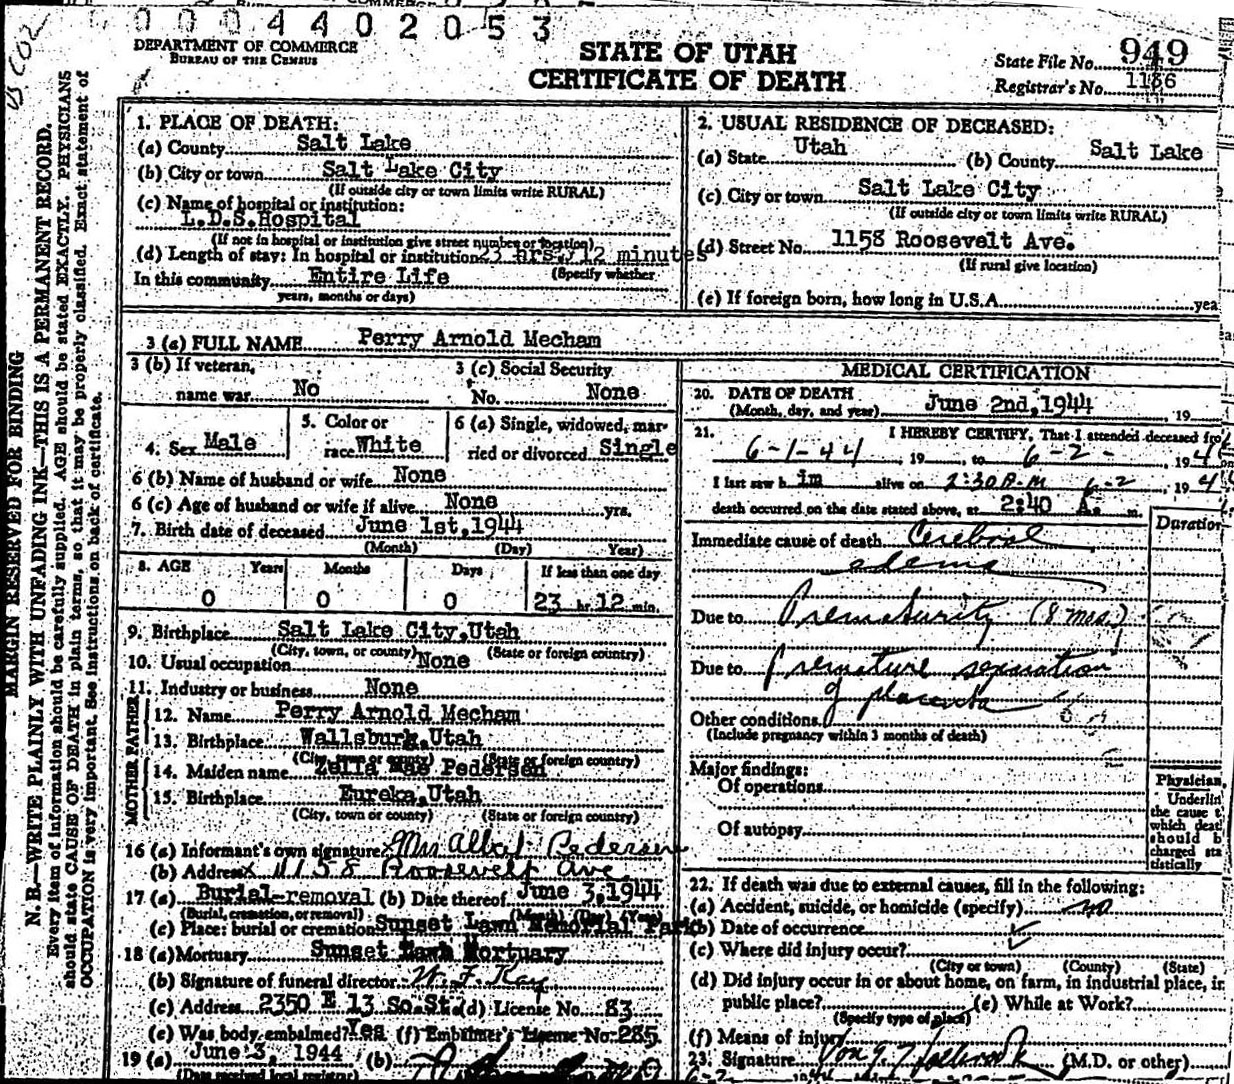 0 0 0 4 4 0 2 0 5 3
DEPARTMENT OF COMMERCE
BUREAU OF THE CENSUS
STATE OF UTAH
CERTIFICATE OF DEATH
State File No. 949
Registrar's No. 1186
MARGIN RESERVED FOR BINDING
N. B.—WRITE PLAINLY WITH UNFADING INK—THIS IS A PERMANENT RECORD.
Every item of information should be carefully supplied. AGE should be stated EXACTLY. PHYSICIANS
should state CAUSE OF DEATH in plain terms, so that it may be properly classified. Exact statement of
OCCUPATION is very important. See instructions on back of certificate.
1. PLACE OF DEATH:
(a) County Salt Lake
(b) City or town Salt Lake City
(If outside city or town limits write RURAL)
(c) Name of hospital or institution:
L.D.S. Hospital
(If not in hospital or institution give street number or location)
(d) Length of stay: In hospital or institution 23 hrs./12 minutes
(Specify whether
In this community Entire Life
years, months or days)
2. USUAL RESIDENCE OF DECEASED:
(a) State Utah (b) County Salt Lake
(c) City or town Salt Lake City
(If outside city or town limits write RURAL)
(d) Street No. 1158 Roosevelt Ave.
(If rural give location)
(e) If foreign born, how long in U.S.A. yea
3 (a) FULL NAME Perry Arnold Mecham
3 (b) If veteran,
name war No
3 (c) Social Security
No. None
4. Sex Male
5. Color or
race White
6 (a) Single, widowed, mar-
ried or divorced Single
6 (b) Name of husband or wife None
6 (c) Age of husband or wife if alive None yrs.
7. Birth date of deceased June 1st, 1944
(Month) (Day) Year)
8. AGE Years Months Days If less than one day
0 0 0 23 hr. 12 min.
9. Birthplace Salt Lake City, Utah
(City, town, or county) (State or foreign country)
10. Usual occupation None
11. Industry or business None
FATHER
12. Name Perry Arnold Mecham
13. Birthplace Wallsburg, Utah
(City, town or county) (State or foreign country)
MOTHER
14. Maiden name Zella Mae Pedersen
15. Birthplace Eureka, Utah
(City, town or county) (State or foreign country)
16 (a) Informant's own signature Mrs Albert Pedersen
(b) Address x 1158 Roosevelt Ave.
17 (a) Burial-removal (b) Date thereof June 3, 1944
(Burial, cremation, or removal) (Month) (Day) (Year)
(c) Place: burial or cremation Sunset Lawn Memorial Park
18 (a) Mortuary Sunset Lawn Mortuary
(b) Signature of funeral director W. F. Kay
(c) Address 2350 E 13 So. St. (d) License No. 83
(e) Was body embalmed? Yes (f) Embalmer's License No. 285
19 (a) June 3, 1944 (b)
(Date received local registrar)
MEDICAL CERTIFICATION
20. DATE OF DEATH
(Month, day, and year) June 2nd, 1944 , 19
21. I HEREBY CERTIFY, That I attended deceased fro
6-1-44 , 19 , to 6-2- , 194
I last saw h im alive on 2:30 P.M 6-2 , 194
death occurred on the date stated above, at 2:40 A. m.
Duration
Immediate cause of death Cerebral
edema
Due to Prematurity (8 mos.)
Due to premature separation
of placenta
Other conditions
(Include pregnancy within 3 months of death)
Major findings:
Of operations
Of autopsy
Physician
Underlin
the cause t
which deat
should b
charged sta
tistically
22. If death was due to external causes, fill in the following:
(a) Accident, suicide, or homicide (specify) no
(b) Date of occurrence
(c) Where did injury occur?
(City or town) (County) (State)
(d) Did injury occur in or about home, on farm, in industrial place, in
public place? (e) While at Work?
(Specify type of place)
(f) Means of injury
23. Signature (M.D. or other)